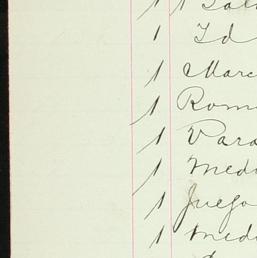 1
1 Id
1 Marc
1 Rom
1 Para
1 Medi
1 Juego
1 Medi